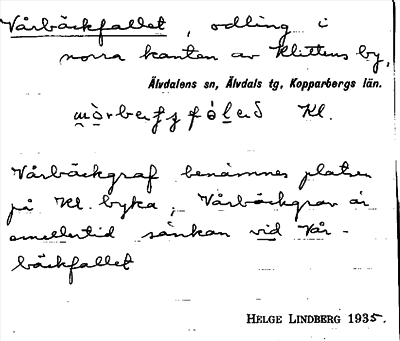 Vårbäckfallet, odling i
norra kanten av Klittens by,
Älvdalens sn, Älvdals tg, Kopparbergs län.
Kl.
Vårbäckgraf benämnes platsen
på Kl. byka; Vårbäckgrav är
emellertid sänkan vid Vår-
bäckfallet
HELGE LINDBERG 1935.